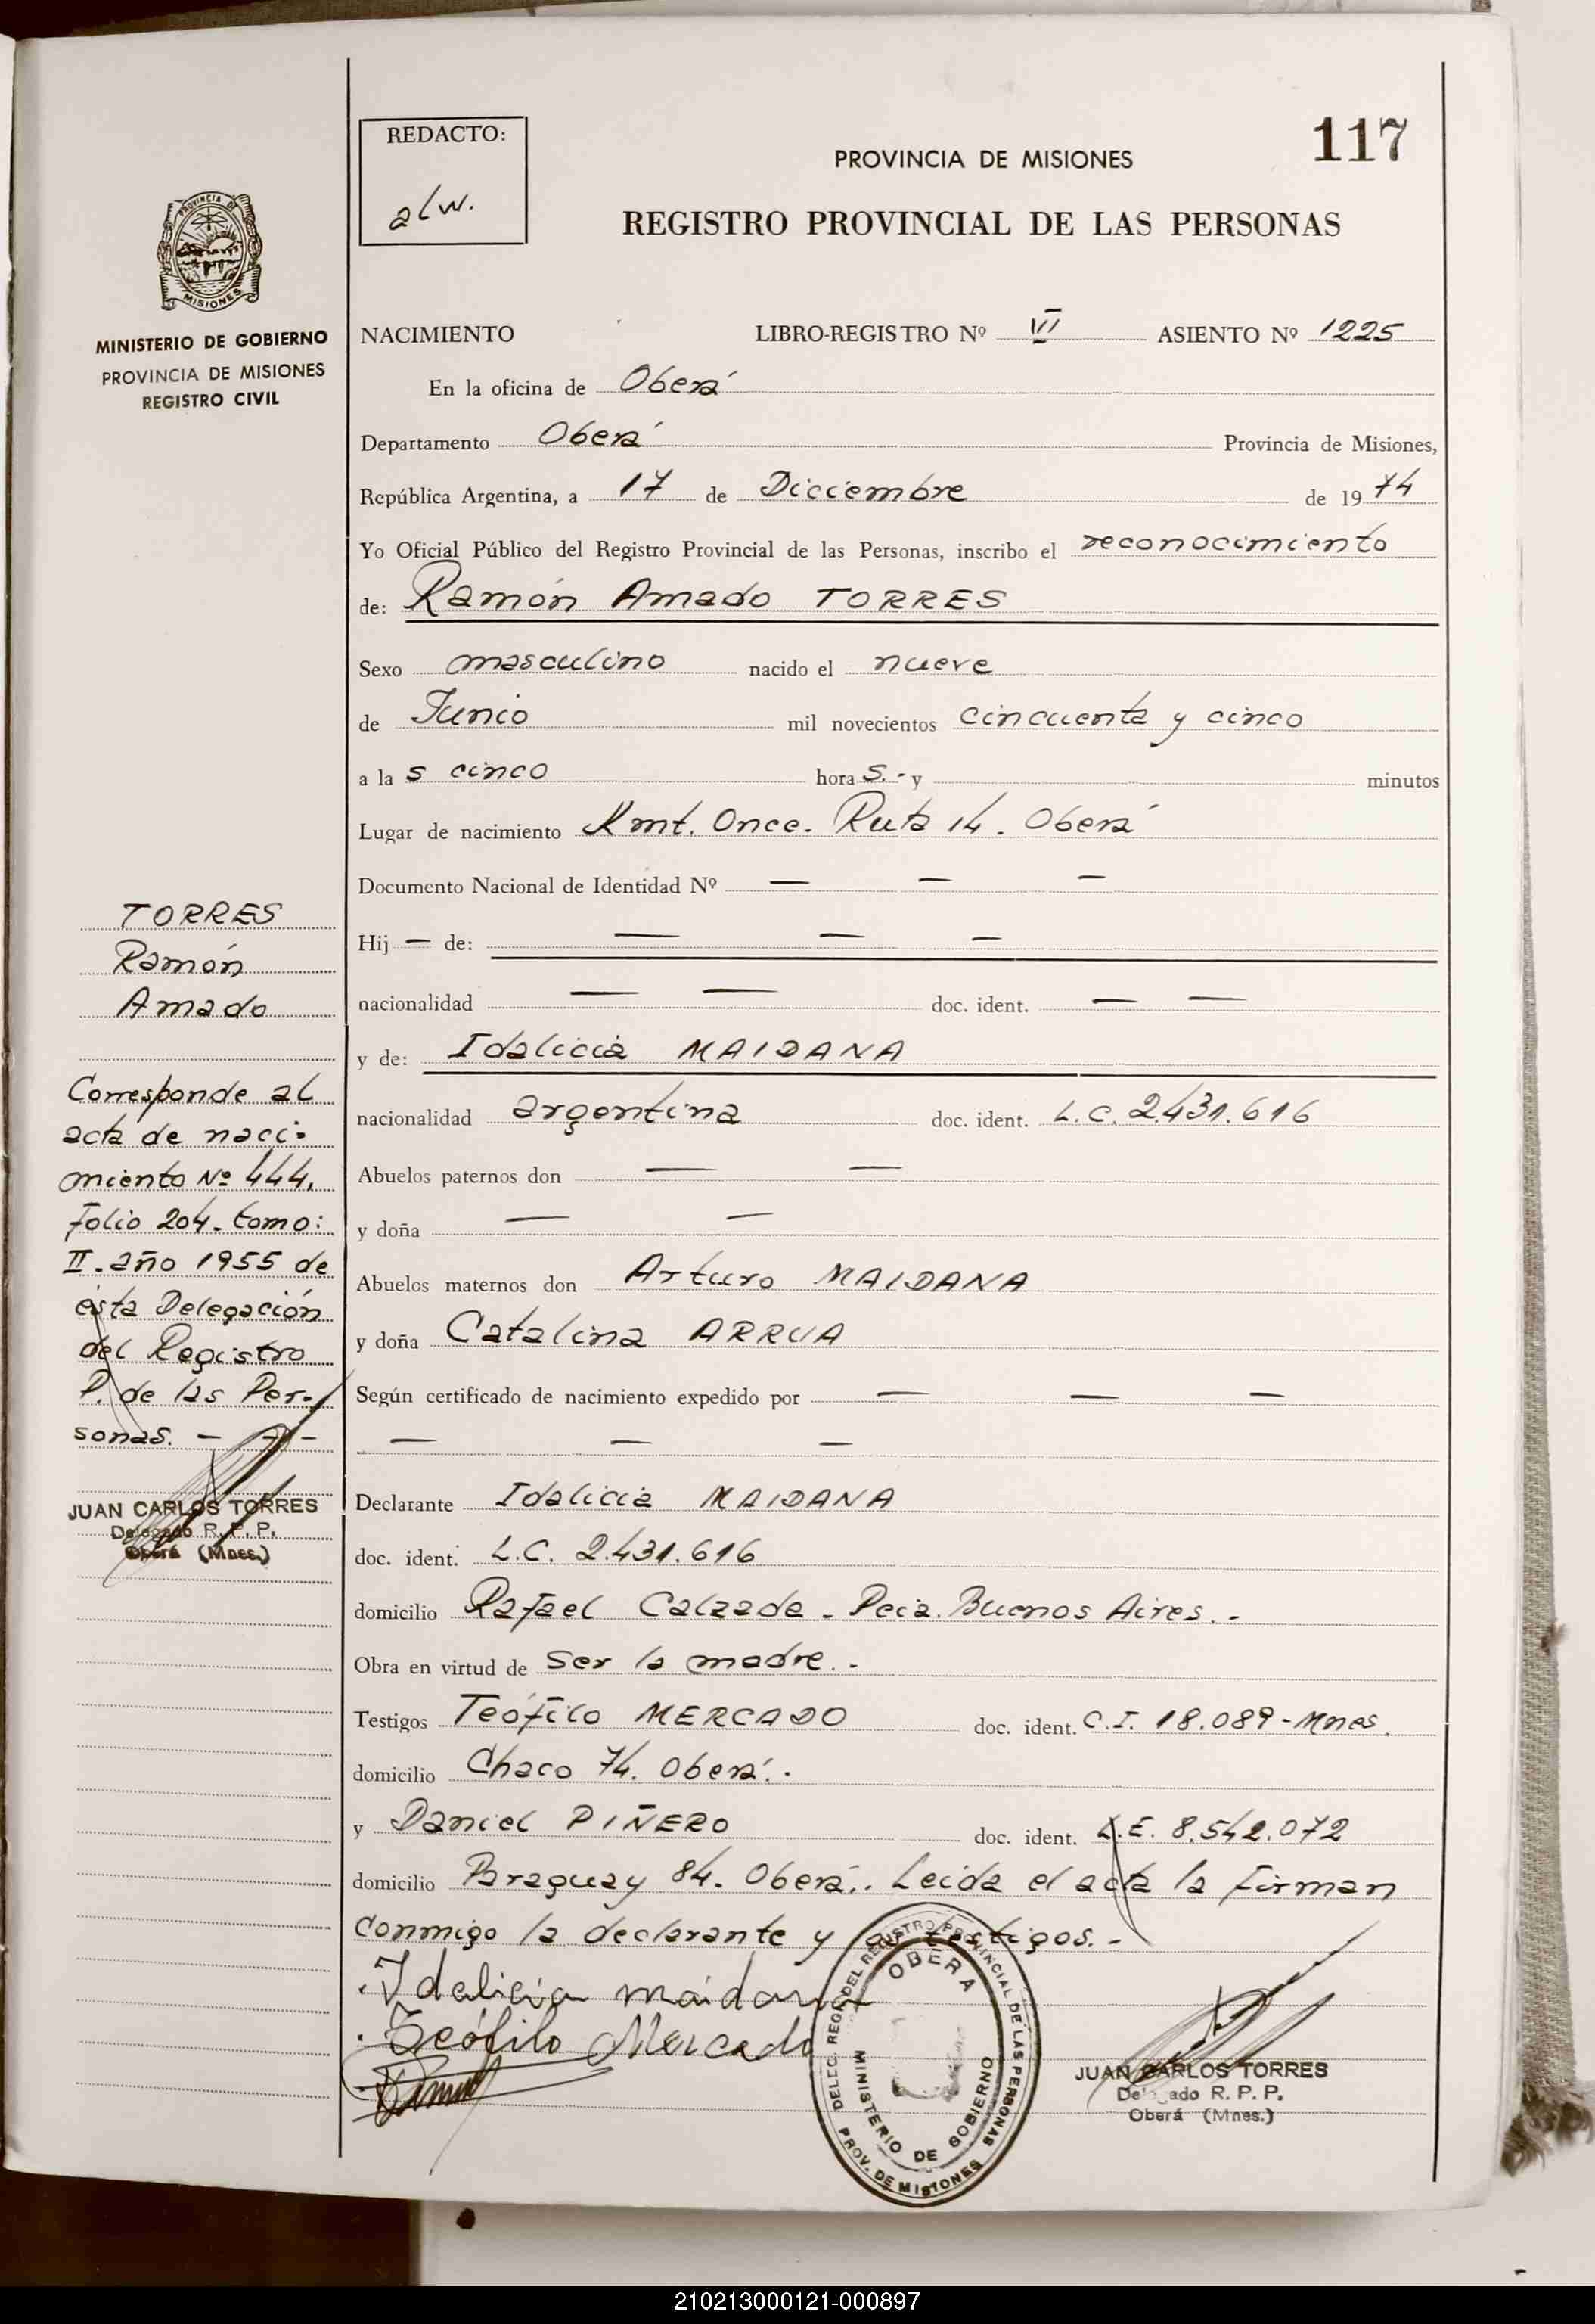 117
REDACTO:
alw.
PROVINCIA DE MISIONES
REGISTRO PROVINCIAL DE LAS PERSONAS
PROVINCIA DE
MISIONES
MINISTERIO DE GOBIERNO
PROVINCIA DE MISIONES
REGISTRO CIVIL
NACIMIENTO LIBRO-REGISTRO Nº VII ASIENTO Nº 1225
En la oficina de Oberá
Departamento Oberá Provincia de Misiones,
República Argentina, a 17 de Diciembre de 1974
Yo Oficial Público del Registro Provincial de las Personas, inscribo el reconocimiento
de: Ramón Amado TORRES
Sexo masculino nacido el nueve
de Junio mil novecientos cincuenta y cinco
a la s cinco hora s.- y minutos
Lugar de nacimiento Kmt. Once. Ruta 14. Oberá
Documento Nacional de Identidad Nº — — —
Hij — de: — — —
nacionalidad — — doc. ident. — —
y de: Idalicia MAIDANA
nacionalidad argentina doc. ident. L.C. 2.431.616
Abuelos paternos don — —
y doña — —
Abuelos maternos don Arturo MAIDANA
y doña Catalina ARRUA
Según certificado de nacimiento expedido por — — —
— — —
Declarante Idalicia MAIDANA
doc. ident. L.C. 2.431.616
domicilio Rafael Calzada - Pcia. Buenos Aires.-
Obra en virtud de ser la madre.-
Testigos Teófilo MERCADO doc. ident. C.I. 18.089-Mnes.
domicilio Chaco 74. Oberá.-
y Daniel PIÑERO doc. ident. L.E. 8.542.072
domicilio Paraguay 84. Oberá.. Leida el acta la firman
conmigo la declarante y los testigos.-
Idalicia maidana
Teófilo Mercado
TORRES
Ramón
Amado
Corresponde al
acta de naci-
miento Nº 444,
Folio 204. tomo:
II. año 1955 de
ésta Delegación
del Registro
P. de las Per-
sonas. — — —
JUAN CARLOS TORRES
Delegado R. P. P.
Oberá (Mnes.)
DELEC. REG. DEL REGISTRO PROVINCIAL DE LAS PERSONAS
OBERA
MINISTERIO DE GOBIERNO
PROV. DE MISIONES
JUAN CARLOS TORRES
Delegado R. P. P.
Oberá (Mnes.)
210213000121-000897